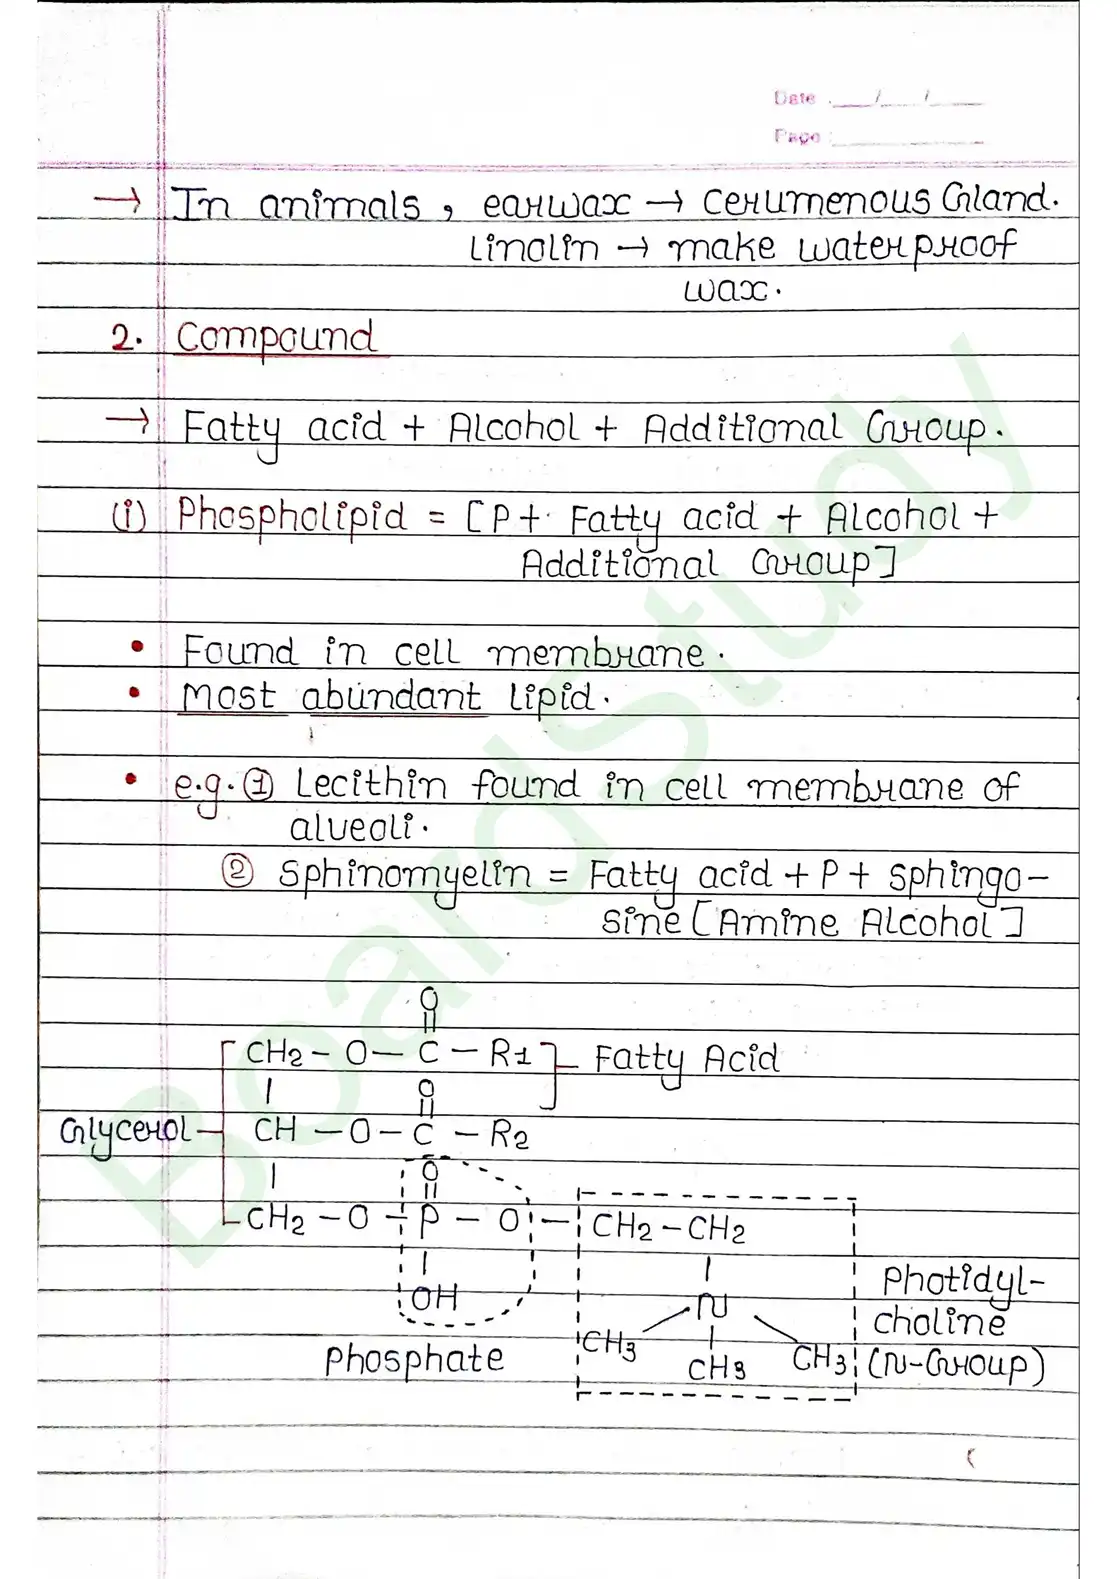 Date . __/__/__
Page : ________
→ In animals, earwax → cerumenous Gland.
Linolin → make waterproof
wax.
2. Compound
→ Fatty acid + Alcohol + Additional Group.
(i) Phospholipid = [P + Fatty acid + Alcohol +
Additional Group]
• Found in cell membrane.
• Most abundant lipid.
• e.g. ① Lecithin found in cell membrane of
alveoli.
② Sphinomyelin = Fatty acid + P + sphingo-
sine [Amine Alcohol]
O
CH2 - O - C - R1 Fatty Acid
O
Glycerol CH - O - C - R2
O
CH2 - O - P - O - CH2 - CH2
OH N Photidyl-
choline
CH3 CH3 CH3 (N-Group)
Phosphate
BoardStudy